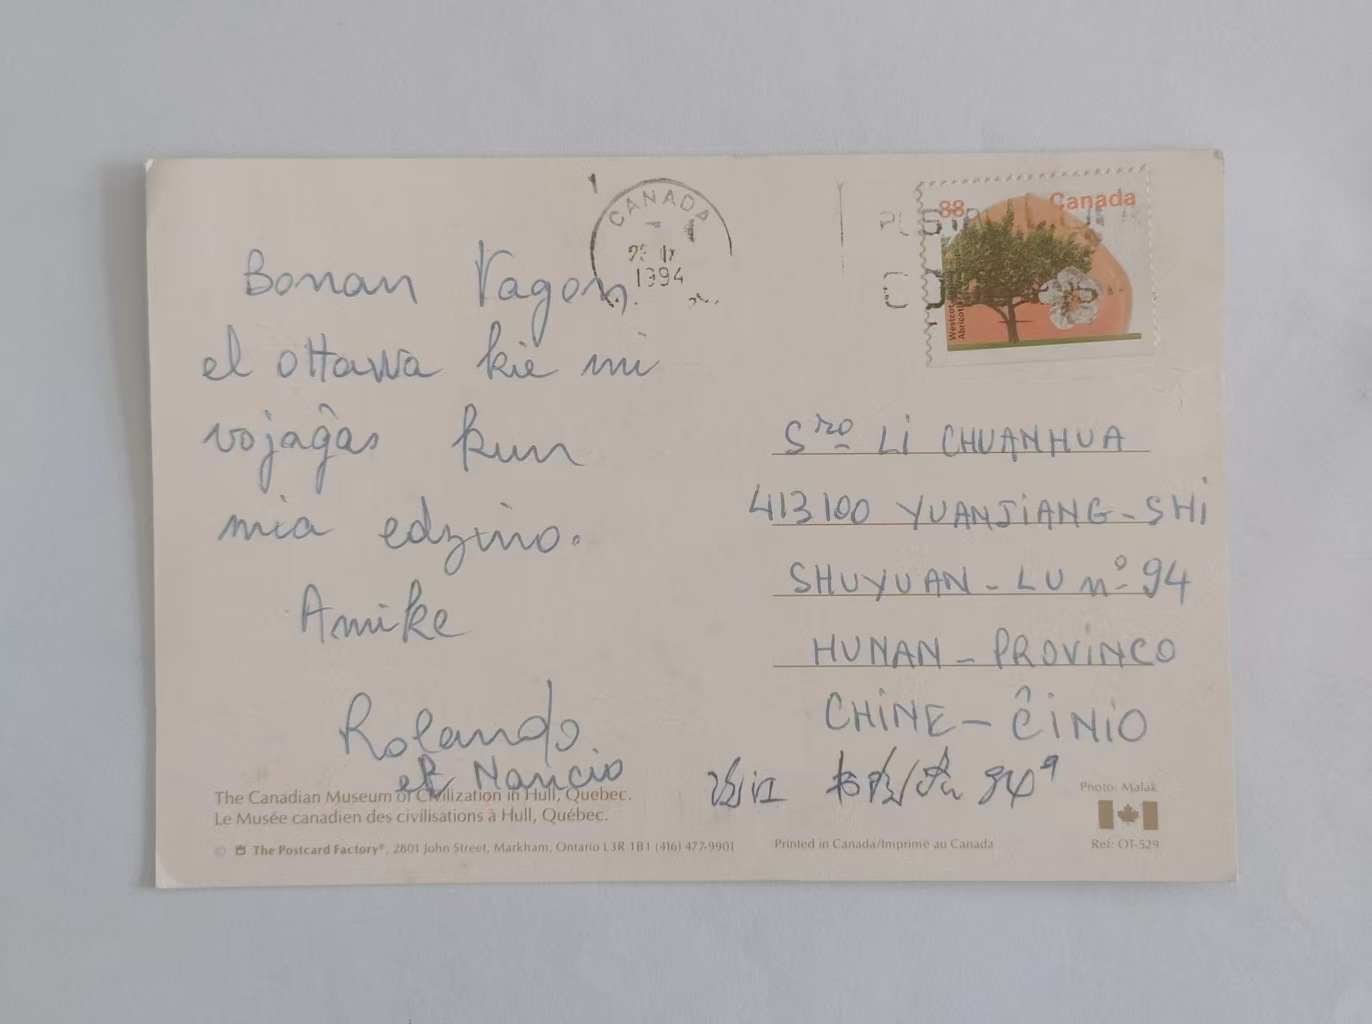 CANADA
1994
88 Canada
Bonan Vagon
el Ottawa kie mi
vojaĝas kun
mia edzino.
Amike
Rolando
et Nancio
Sro Li CHUANHUA
413100 YUANJIANG-SHi
SHUYUAN-LU nº 94
HUNAN-PROViNCO
CHiNE-ĈiNiO
沅江 书院路 94号
The Canadian Museum of Civilization in Hull, Quebec.
Le Musée canadien des civilisations à Hull, Québec.
© The Postcard Factory®, 2801 John Street, Markham, Ontario L3R 1B1 (416) 477-9901
Printed in Canada/Imprimé au Canada
Photo: Malak
Ref: OT-529